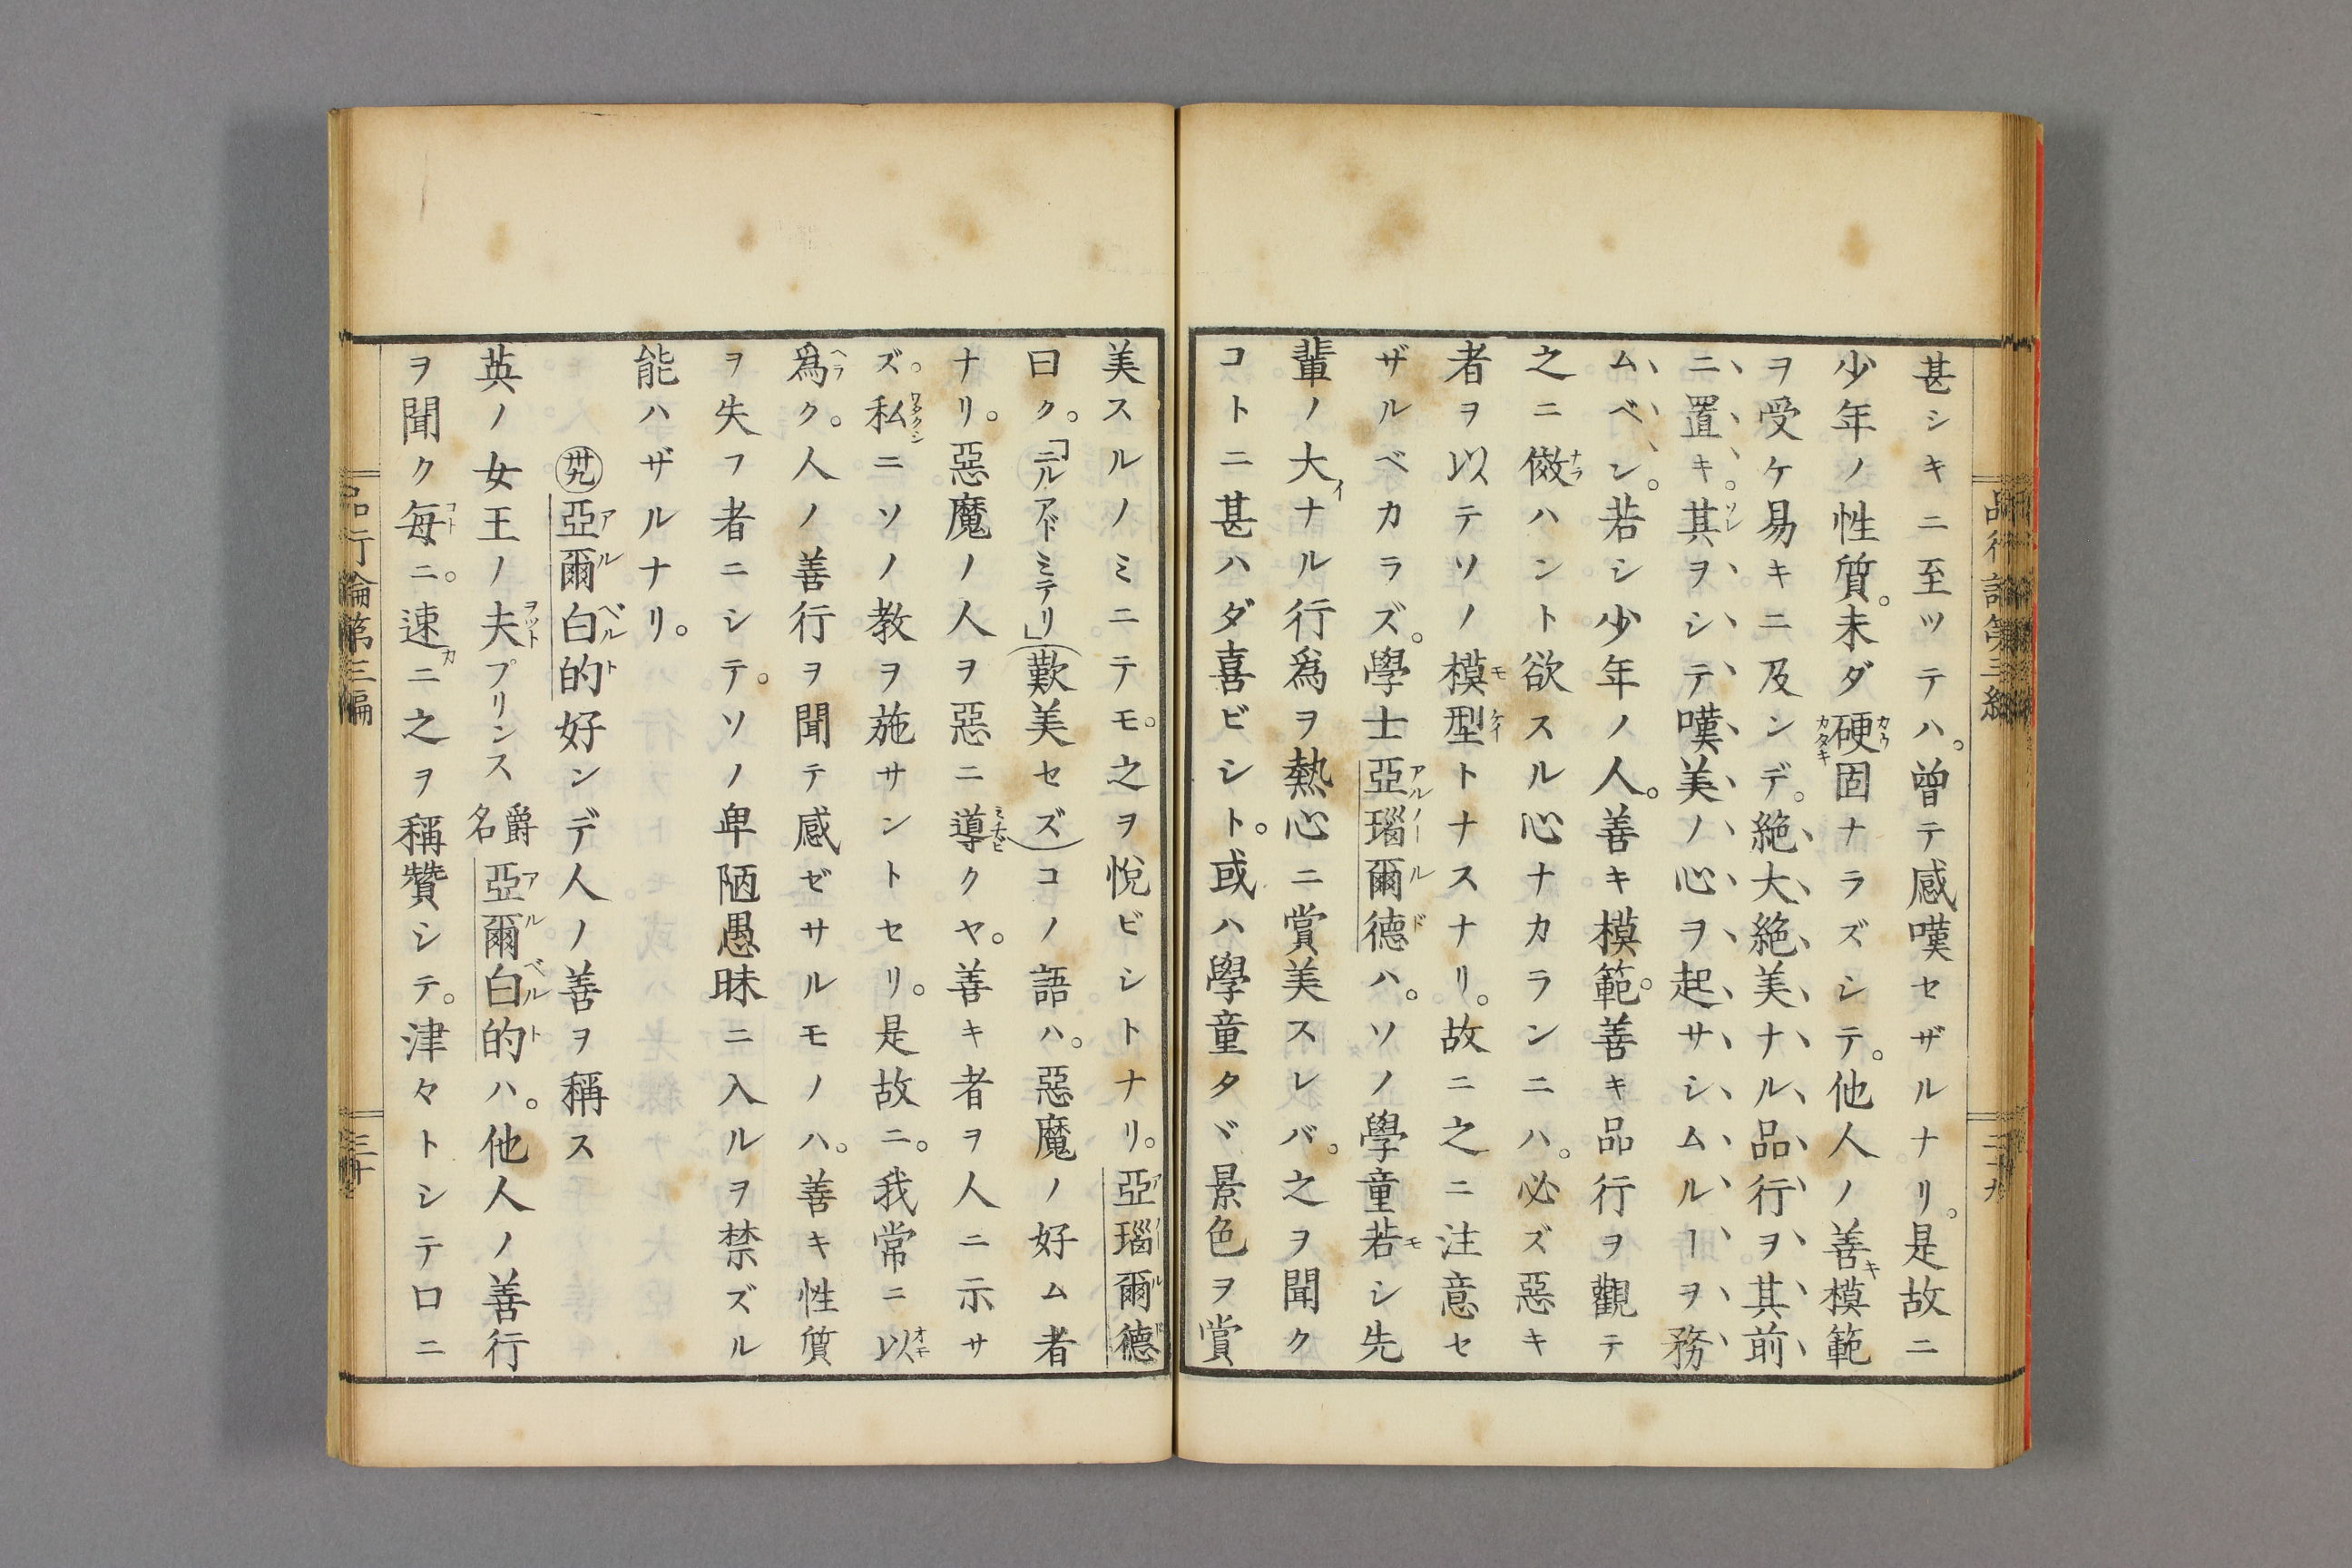 甚シキニ至ツテハ。曽テ感嘆セザルナリ。是故ニ
少年ノ性質。未ダ硬固ナラズシテ。他人ノ善キ模範
ヲ受ケ易キニ及ンデ。絶大絶美ナル品行ヲ其前
ニ置キ。其ヲシテ嘆美ノ心ヲ起サシムルーヲ務
ムベシ。若シ少年ノ人。善キ模範。善キ品行ヲ觀テ
之ニ傚ハント欲スル心ナカランニハ。必ズ惡キ
者ヲ以テソノ模型トナスナリ。故ニ之ニ注意セ
ザルベカラズ。學士亞瑙爾德ハ。ソノ學童若シ先
輩ノ大イナル行爲ヲ熱心ニ賞美スレバ。之ヲ聞ク
コトニ甚ハダ喜ビシト。或ハ學童タヾ景色ヲ賞
美スルノミニテモ。之ヲ悅ビシトナリ。亞瑙爾德
曰ク。「ニルアドミテリ」(歎美セズ)コノ語ハ。惡魔ノ好ム者
ナリ。惡魔ノ人ヲ惡ニ導クヤ。善キ者ヲ人ニ示サ
ズ。私ニソノ教ヲ施サントセリ。是故ニ。我常ニ以
爲ク。人ノ善行ヲ聞テ感ゼサルモノハ。善キ性質
ヲ失フ者ニシテ。ソノ卑陋愚昧ニ入ルヲ禁ズル
能ハザルナリ。
㊴亞爾白的好ンデ人ノ善ヲ稱ス
英ノ女王ノ夫プリンス爵名亞爾白的ハ。他人ノ善行
ヲ聞ク每ニ。速カニ之ヲ稱贊シテ。津々トシテ口ニ
品行論第三編
三十